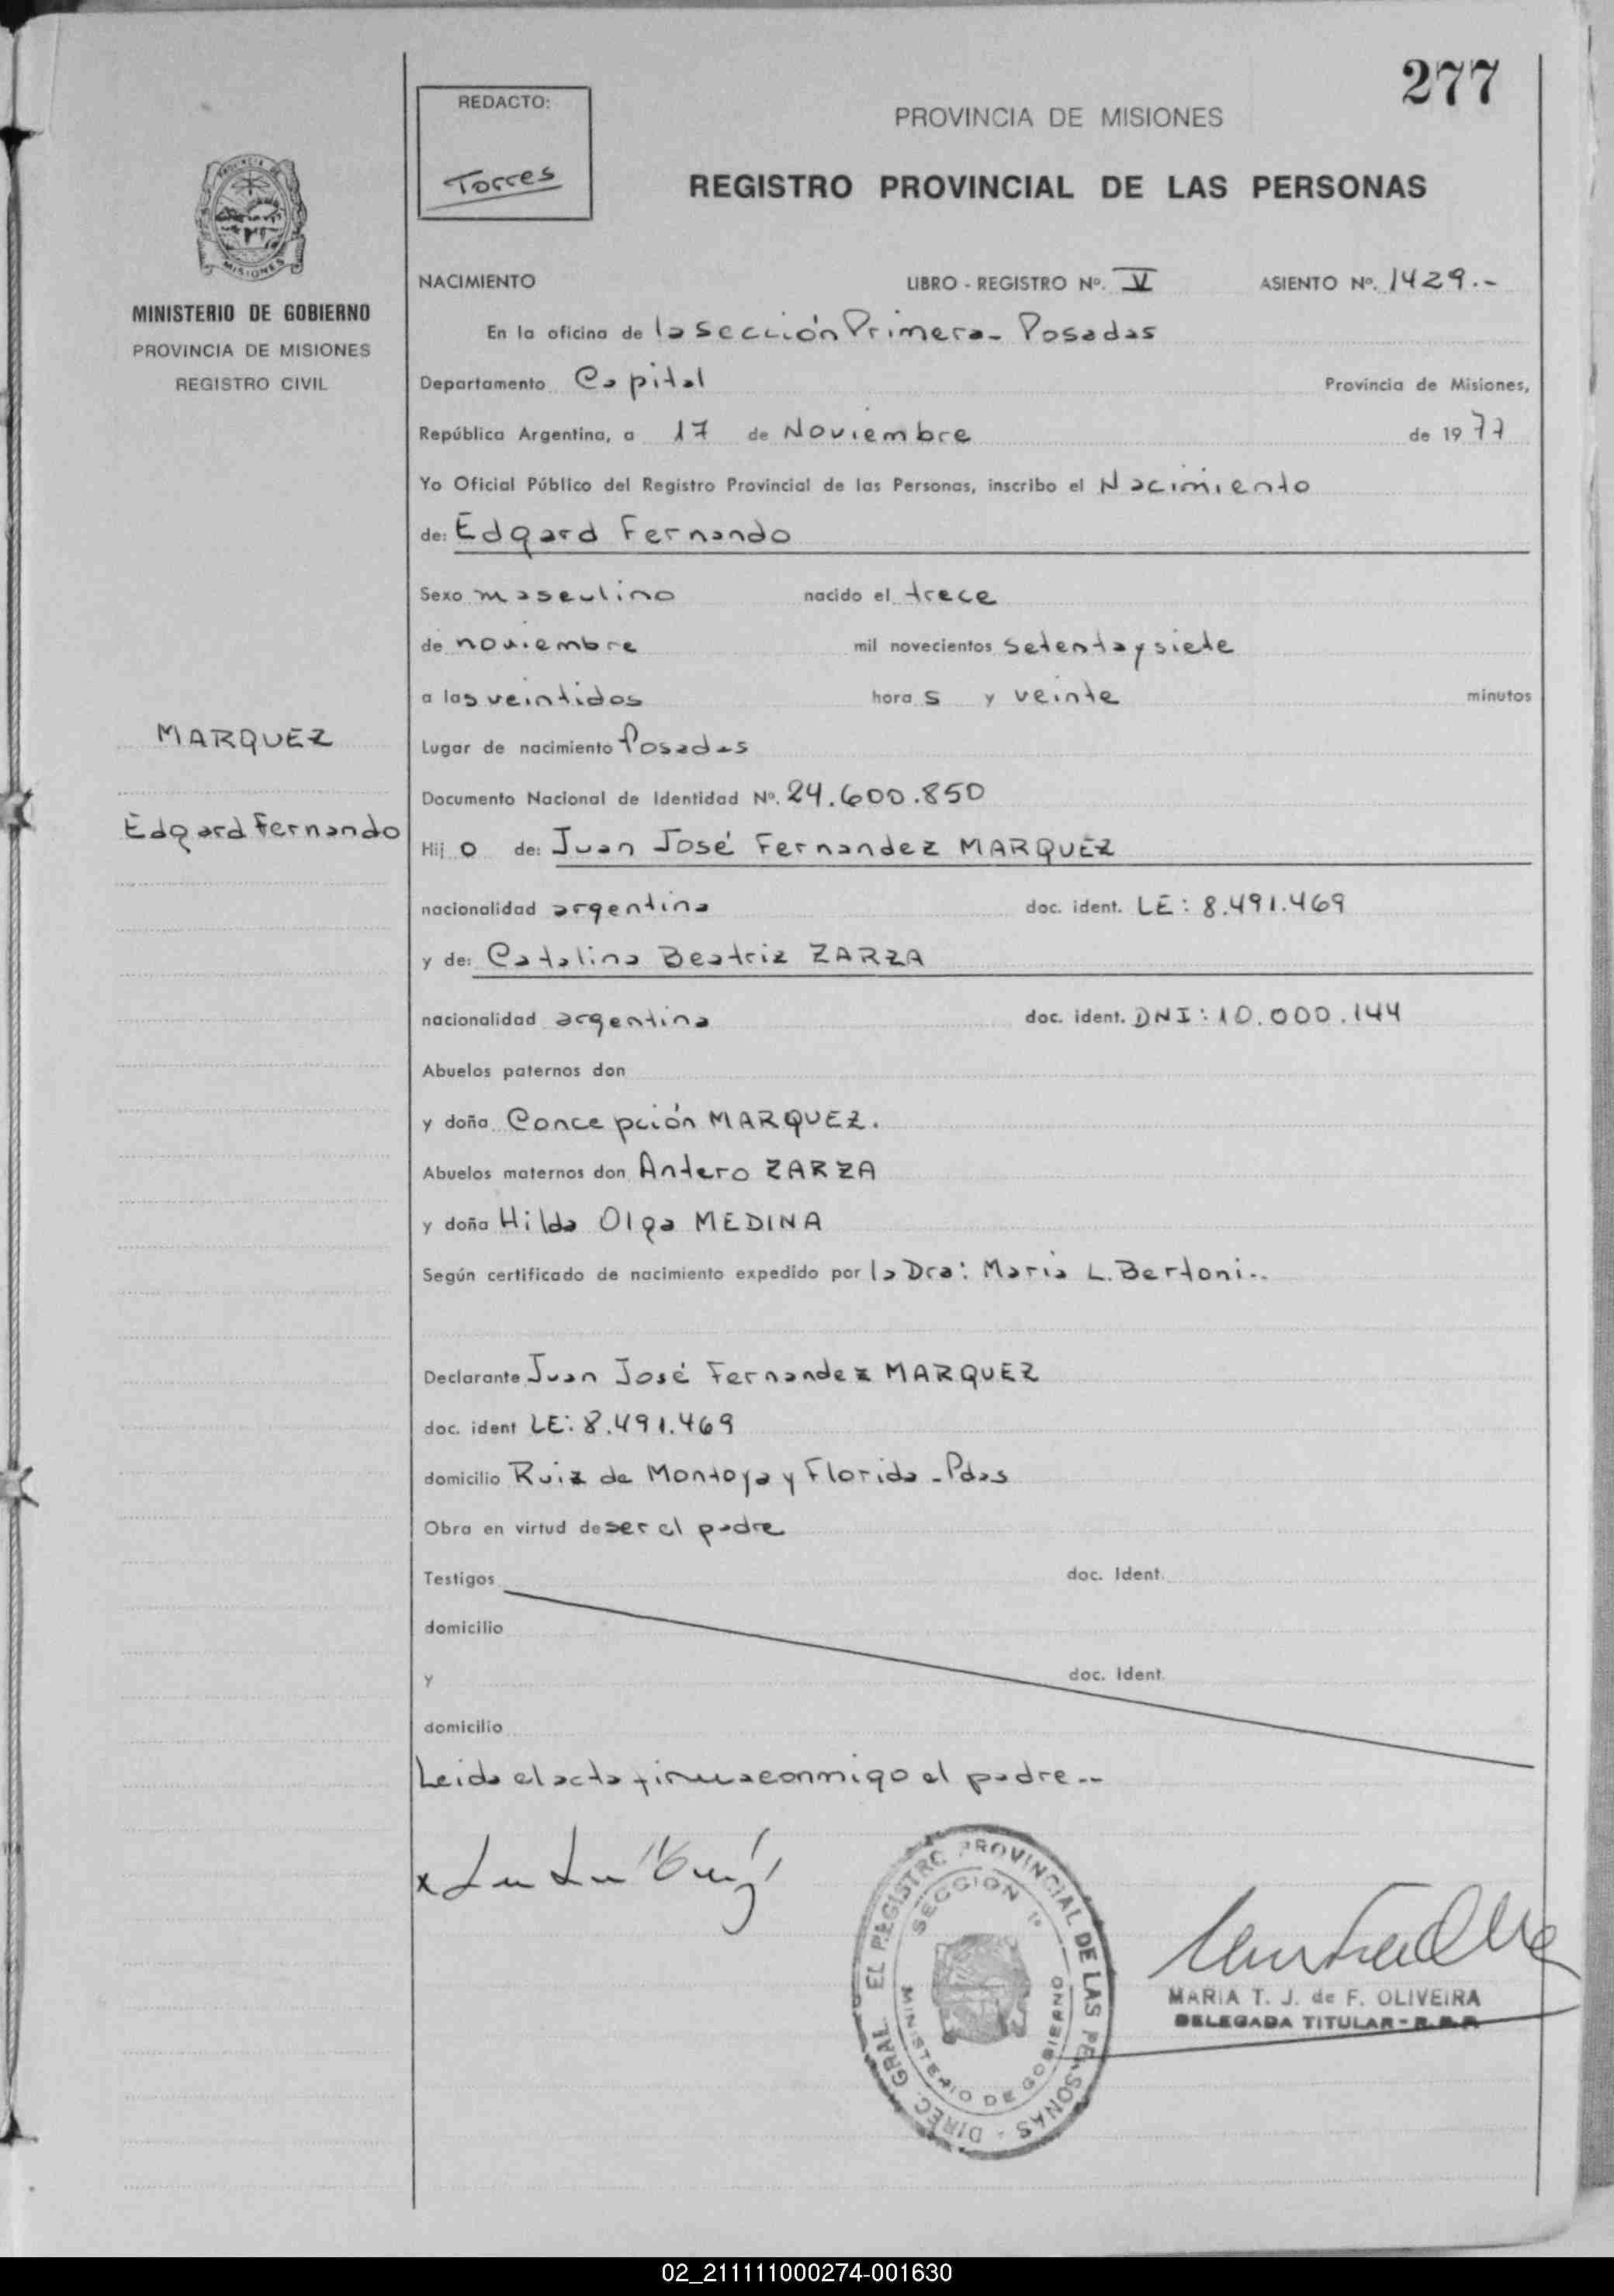 277
REDACTO:
Torres
PROVINCIA DE MISIONES
REGISTRO PROVINCIAL DE LAS PERSONAS
PROVINCIA DE
MISIONES
MINISTERIO DE GOBIERNO
PROVINCIA DE MISIONES
REGISTRO CIVIL
NACIMIENTO LIBRO - REGISTRO Nº. V ASIENTO Nº. 1429.-
En la oficina de la Sección Primera - Posadas
Departamento Capital Provincia de Misiones,
República Argentina, a 17 de Noviembre de 1977
Yo Oficial Público del Registro Provincial de las Personas, inscribo el Nacimiento
de: Edgard Fernando
Sexo masculino nacido el trece
de noviembre mil novecientos setenta y siete
a las veintidos horas y veinte minutos
MARQUEZ
Lugar de nacimiento Posadas
Documento Nacional de Identidad Nº. 24.600.850
Edgard Fernando
Hijo de: Juan José Fernandez MARQUEZ
nacionalidad argentina doc. ident. LE: 8.491.469
y de: Catalina Beatriz ZARZA
nacionalidad argentina doc. ident. DNI: 10.000.144
Abuelos paternos don
y doña Concepción MARQUEZ.
Abuelos maternos don Antero ZARZA
y doña Hilda Olga MEDINA
Según certificado de nacimiento expedido por la Dra: Maria L. Bertoni..
Declarante Juan José Fernandez MARQUEZ
doc. ident LE: 8.491.469
domicilio Ruiz de Montoya y Florida - Pdas
Obra en virtud de ser el padre
Testigos doc. Ident.
domicilio
y doc. Ident.
domicilio
Leida el acta firma conmigo el padre --
x
DIREC. GRAL. EL REGISTRO PROVINCIAL DE LAS PERSONAS -
SECCION 1º
MINISTERIO DE GOBIERNO
MARIA T. J. de F. OLIVEIRA
DELEGADA TITULAR - R.P.P.
02_211111000274-001630